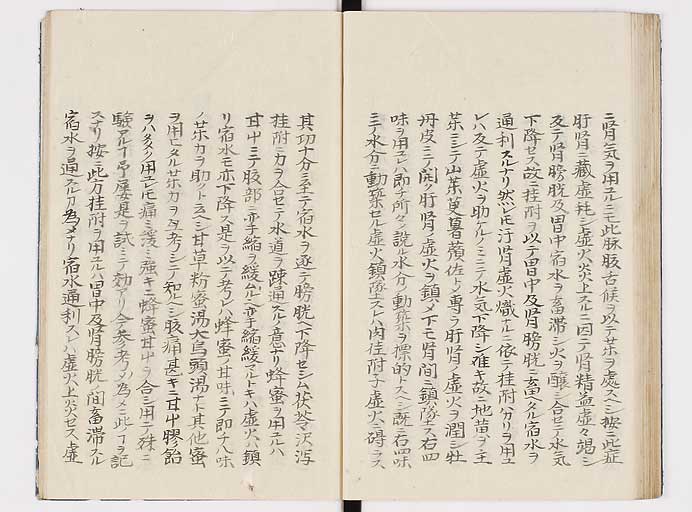 ニ腎気ヲ用ユルニモ此脉腹舌候ヲ以テ茋ヲ處スヘシ按ニ此症
肝腎ニ藏虚耗シ虚火炎上スルニ因テ腎精益虚々竭シ
及テ腎膀胱及胃中宿水ヲ畜滞シ火ヲ醸シ合セテ水気
下降セス故ニ桂附ヲ以テ胃中及腎膀胱ニ畜ヘタル宿水ヲ
通利スルナリ然レモ汙腎虚火熾ナルニ依テ桂附分リヲ用ユ
レハ及テ虚火ヲ助ケルノミニテ水気下降シ難キ故ニ地黄ヲ主
茋シテ山茱萸薯蕷佐トシ専ラ肝腎ノ虚火ヲ潤シ牡
丹皮ニテ開ク肝腎ノ虚火ヲ鎮メ下モ腎間ニ鎮墜ス右四
味ヲ用ユレハ即チ所々ニ説ル水分ノ動築ヲ標的トスヘシ既ニ右四味
ニテ水分ニ動築セル虚火鎮墜スレハ肉桂附子虚火ニ碍ラス
其功十分ニ至テ宿水ヲ逐テ膀胱ヘ下降セシム茯苓沢瀉
桂附ニ力ヲ合セテ水道ヲ疎通スル意ナリ蜂蜜ヲ用ユルハ
甘中ニテ腹部ノ亦子縮ヲ緩ムルヘ亦子縮緩マルトキハ虚火ハ鎮
リ宿水モ亦下降ス是ヲ以テ考レハ蜂蜜ノ甘味ニテ即チ八味
ノ茋力ヲ助ットヱヘシ甘草粉蜜湯大烏頭湯ナト其他蜜
ヲ用ヒタル茋力ヲ又考シテ知ルヘシ腹痛甚キニ甘中膠飴
ヲハタクク用ユレモ痛ミ緩ミ強キニ蜂蜜甘中ヲ合シ用テ殊ニ
驗アルヿ予屢是ヲ試ミテ効アリ今参考ノ為メニ此ヿヲ記
スナリ按ニ此方桂附ヲ用ユルハ胃中及腎膀胱ノ間畜滞スル
宿水ヲ逼スル力為メナリ宿水通利スレハ虚火上炎セス虚